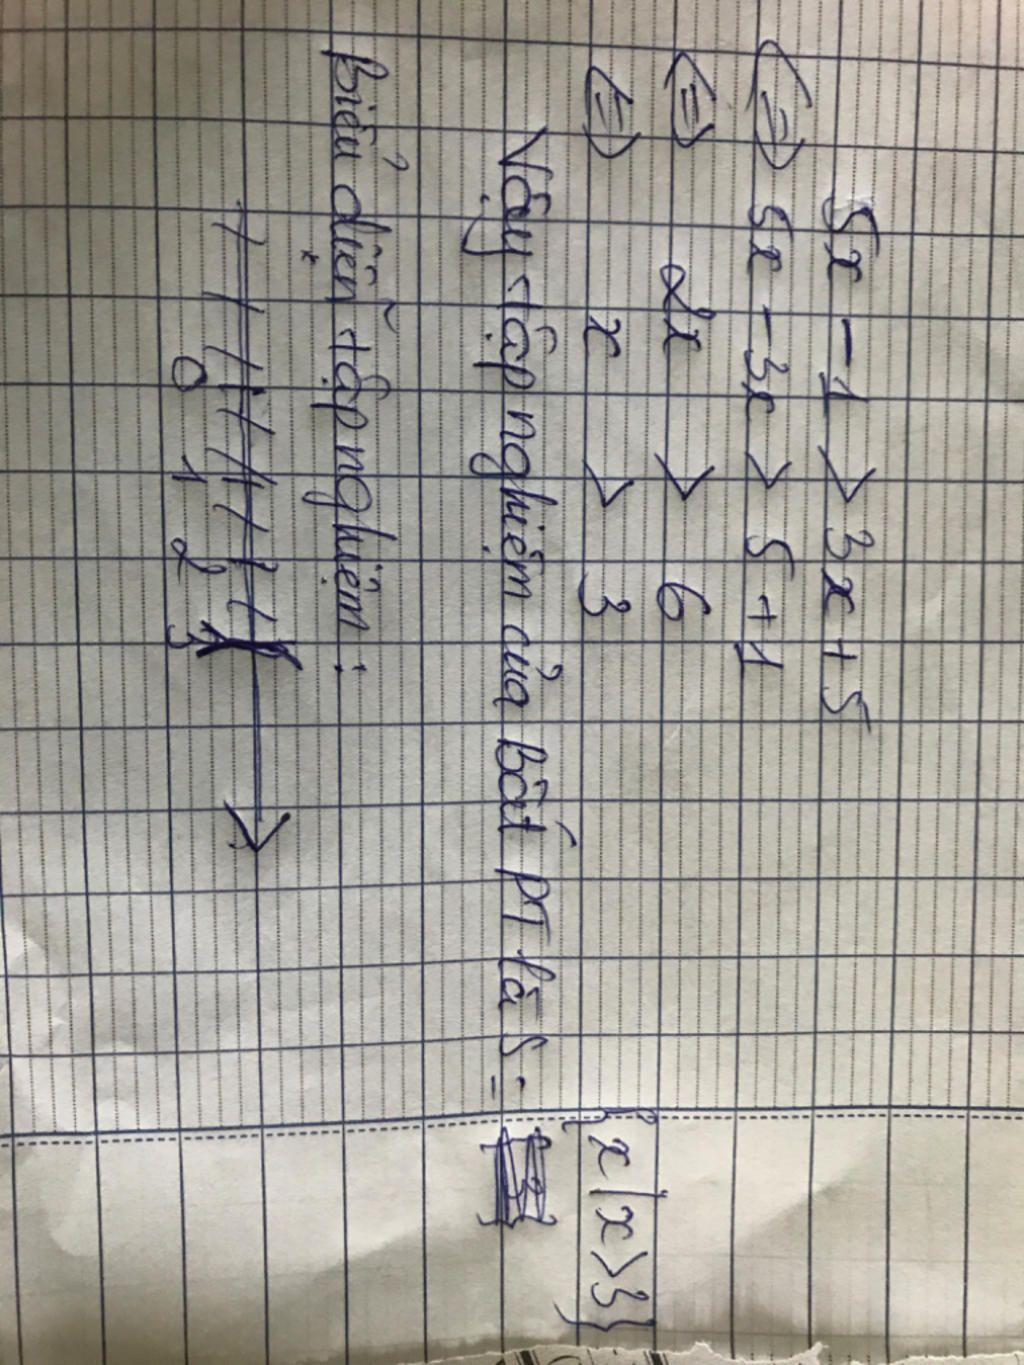 5x - 1 > 3x + 5
(=) 5x - 3x > 5 + 1
(=) 2x > 6
(=) x > 3
{x | x > 3}
Vậy tập nghiệm của Bất PT là S =
Biểu diễn tập nghiệm :
0 1 2 3